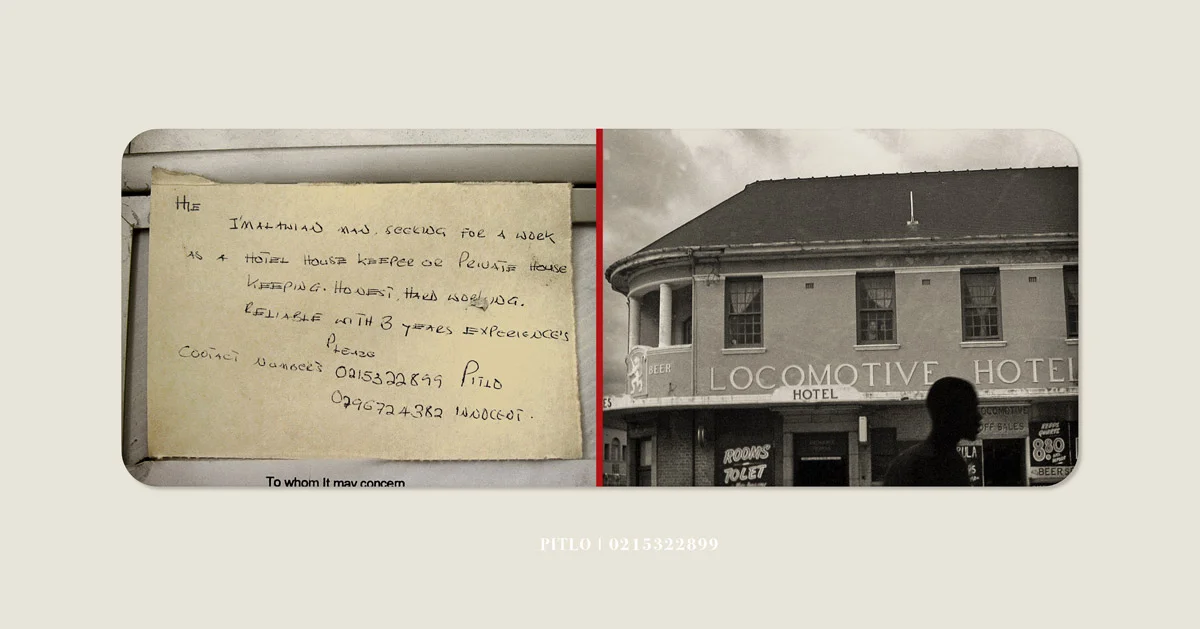 HIE
I'MALAWIAN MAN. SEEKING FOR A WORK
AS A HOTEL HOUSE KEEPER OR PRIVATE HOUSE
KEEPING. HONEST, HARD WORKING.
RELIABLE WITH 3 YEARS EXPERIENCE'S
PLEASE
CONTACT NUMBER'S 0215322899 PITLO
0296724382 INNOCENT.
To whom It may concern
BEER
LOCOMOTIVE HOTEL
HOTEL
ES
LOCOMOTIVE
OFF SALES
ROOMS
TO LET
QUARTS
880
BEERS
PITLO | 0215322899